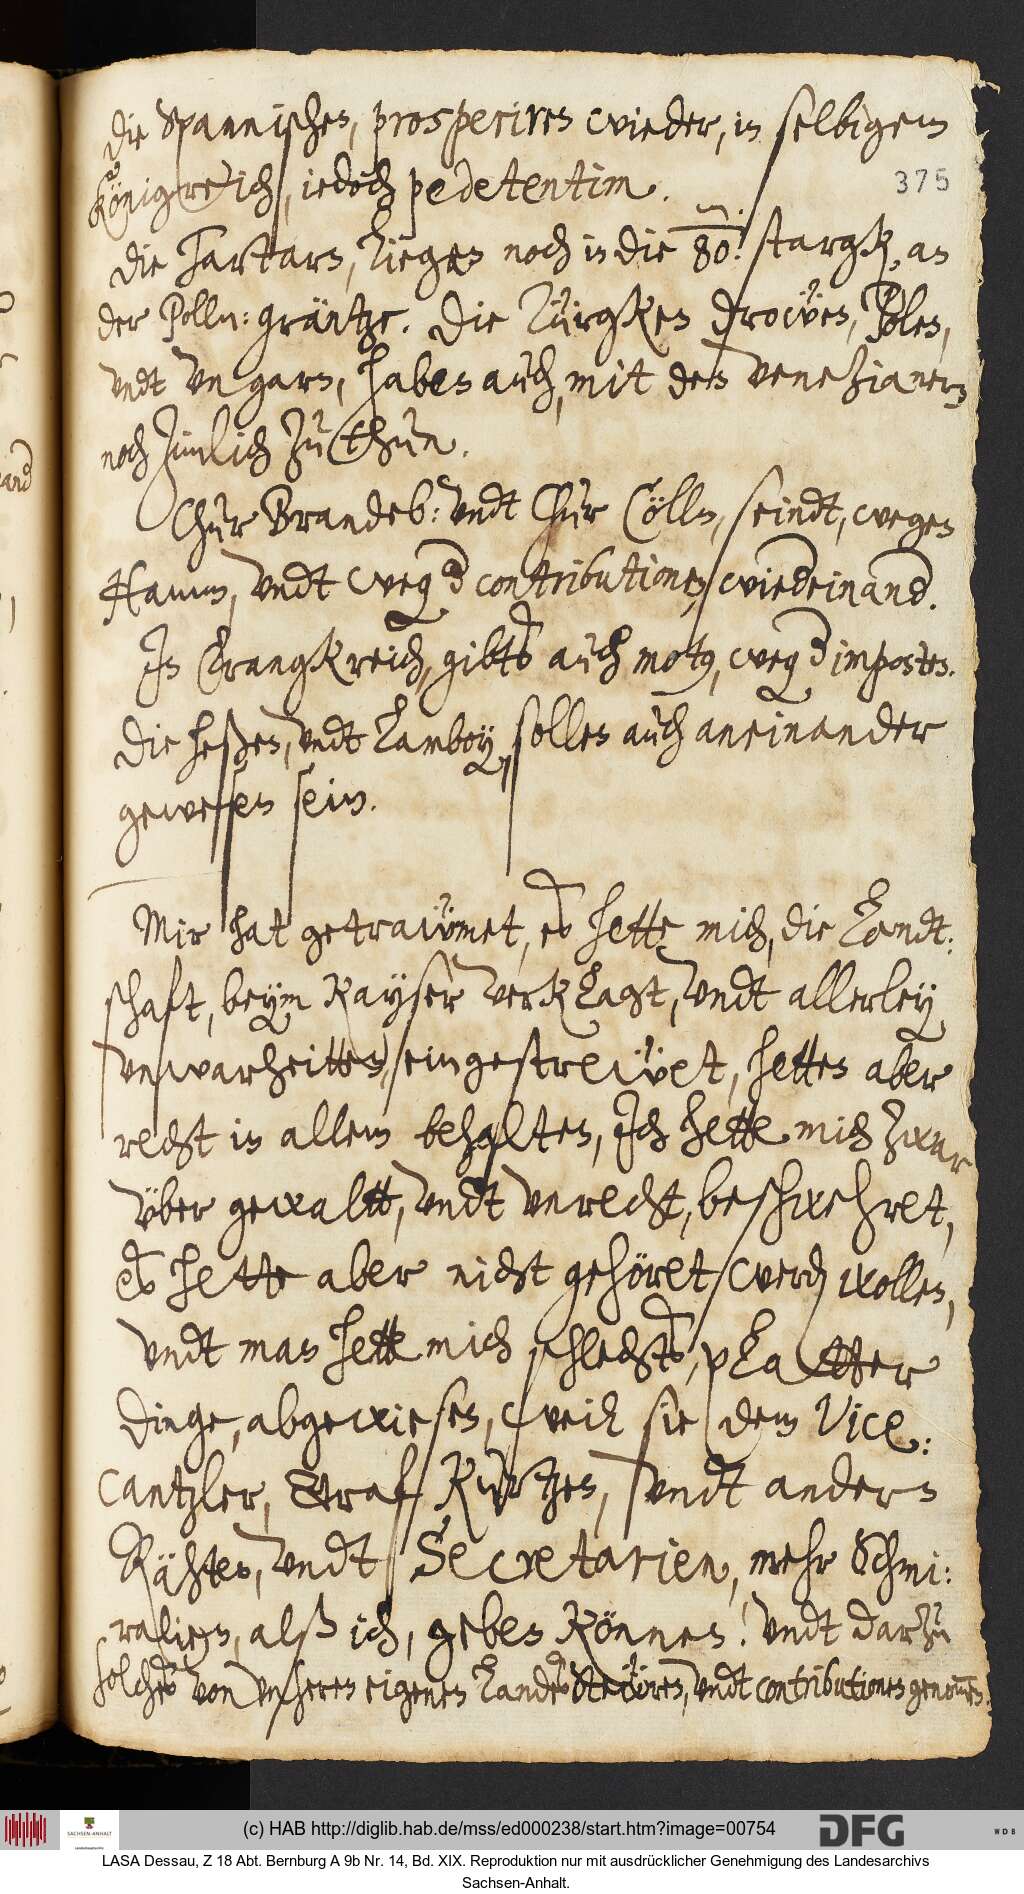 die Spannischen, prosperiren wieder, in selbigem
Königreich, iedoch pedetentim.
375
Die Tartarn, liegen noch in die 80m: stargk, an
der Polln: gräntze. Die Türgken dröwen, Polen,
vndt Vngarn, haben auch, mit den Venezianern
noch zimlich zu thun.
Chur Brandeb: vndt Chur Cölln, seindt, wegen
Hamm, vndt weg der contributionen, wiedereinand.
In Frangkreich, gibts auch motus, weg der imposten.
Die Heßen, vndt Lamboy, sollen auch aneinander
gewesen sein.
Mir hat getraümet, es hette mich, die Landt:
schafft, beym Kayser verklagt, vndt allerley
vnwarheitten, eingestrewet, hetten aber
recht in allem behalten, Ich hette mich zwar
über gewaltt, vndt vnrecht, beschwehret,
es hette aber nicht gehöret werden wollen,
vndt man hette mich schlechts, platter
dinge, abgewiesen, weil sie dem Vice:
Cantzler, Graf Kurtzen, vndt andern
Rähten, vndt Secretarien, mehr Schmi:
ralien, alß ich, geben können! vndt darzu
solches von vnseren eigenen Landes Stewren, vndt contributionen genommen.
(c) HAB http://diglib.hab.de/mss/ed000238/start.htm?image=00754
SACHSEN-ANHALT
DFG
WDB
LASA Dessau, Z 18 Abt. Bernburg A 9b Nr. 14, Bd. XIX. Reproduktion nur mit ausdrücklicher Genehmigung des Landesarchivs
Sachsen-Anhalt.